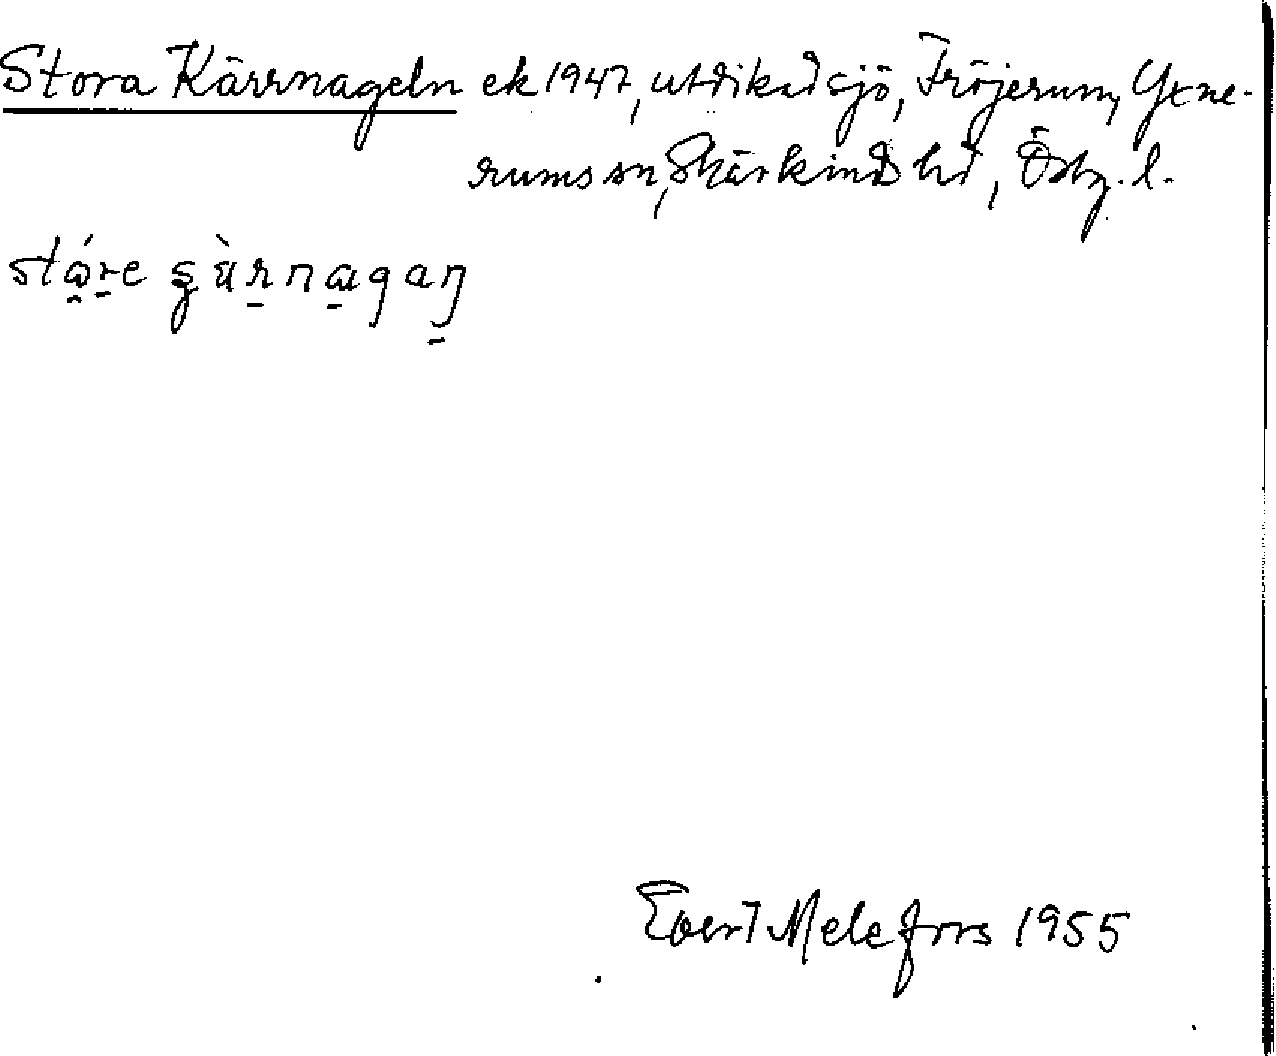 Stora Kärrnageln ek 1947, utdikad sjö, Fröjerum, Yxne-
rums sn, Skärkinds hd, Östg. l.
stǻre
Evert Melefors 1955